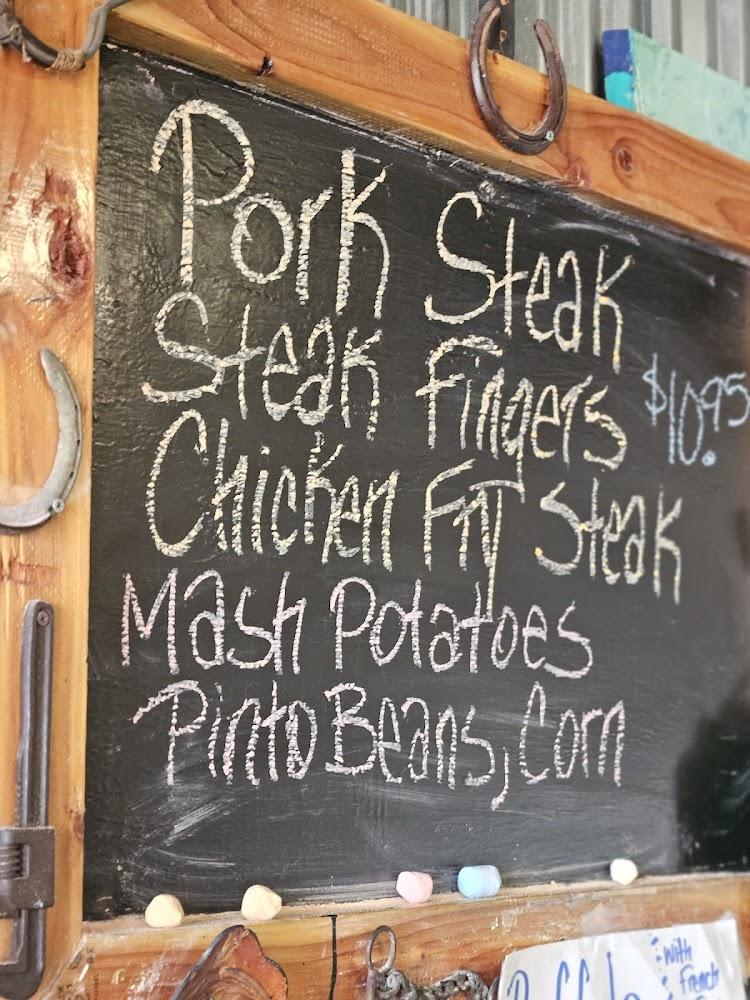 Pork Steak
Steak Fingers $10.95
Chicken Fry Steak
Mash Potatoes
Pinto Beans, Corn
with
French